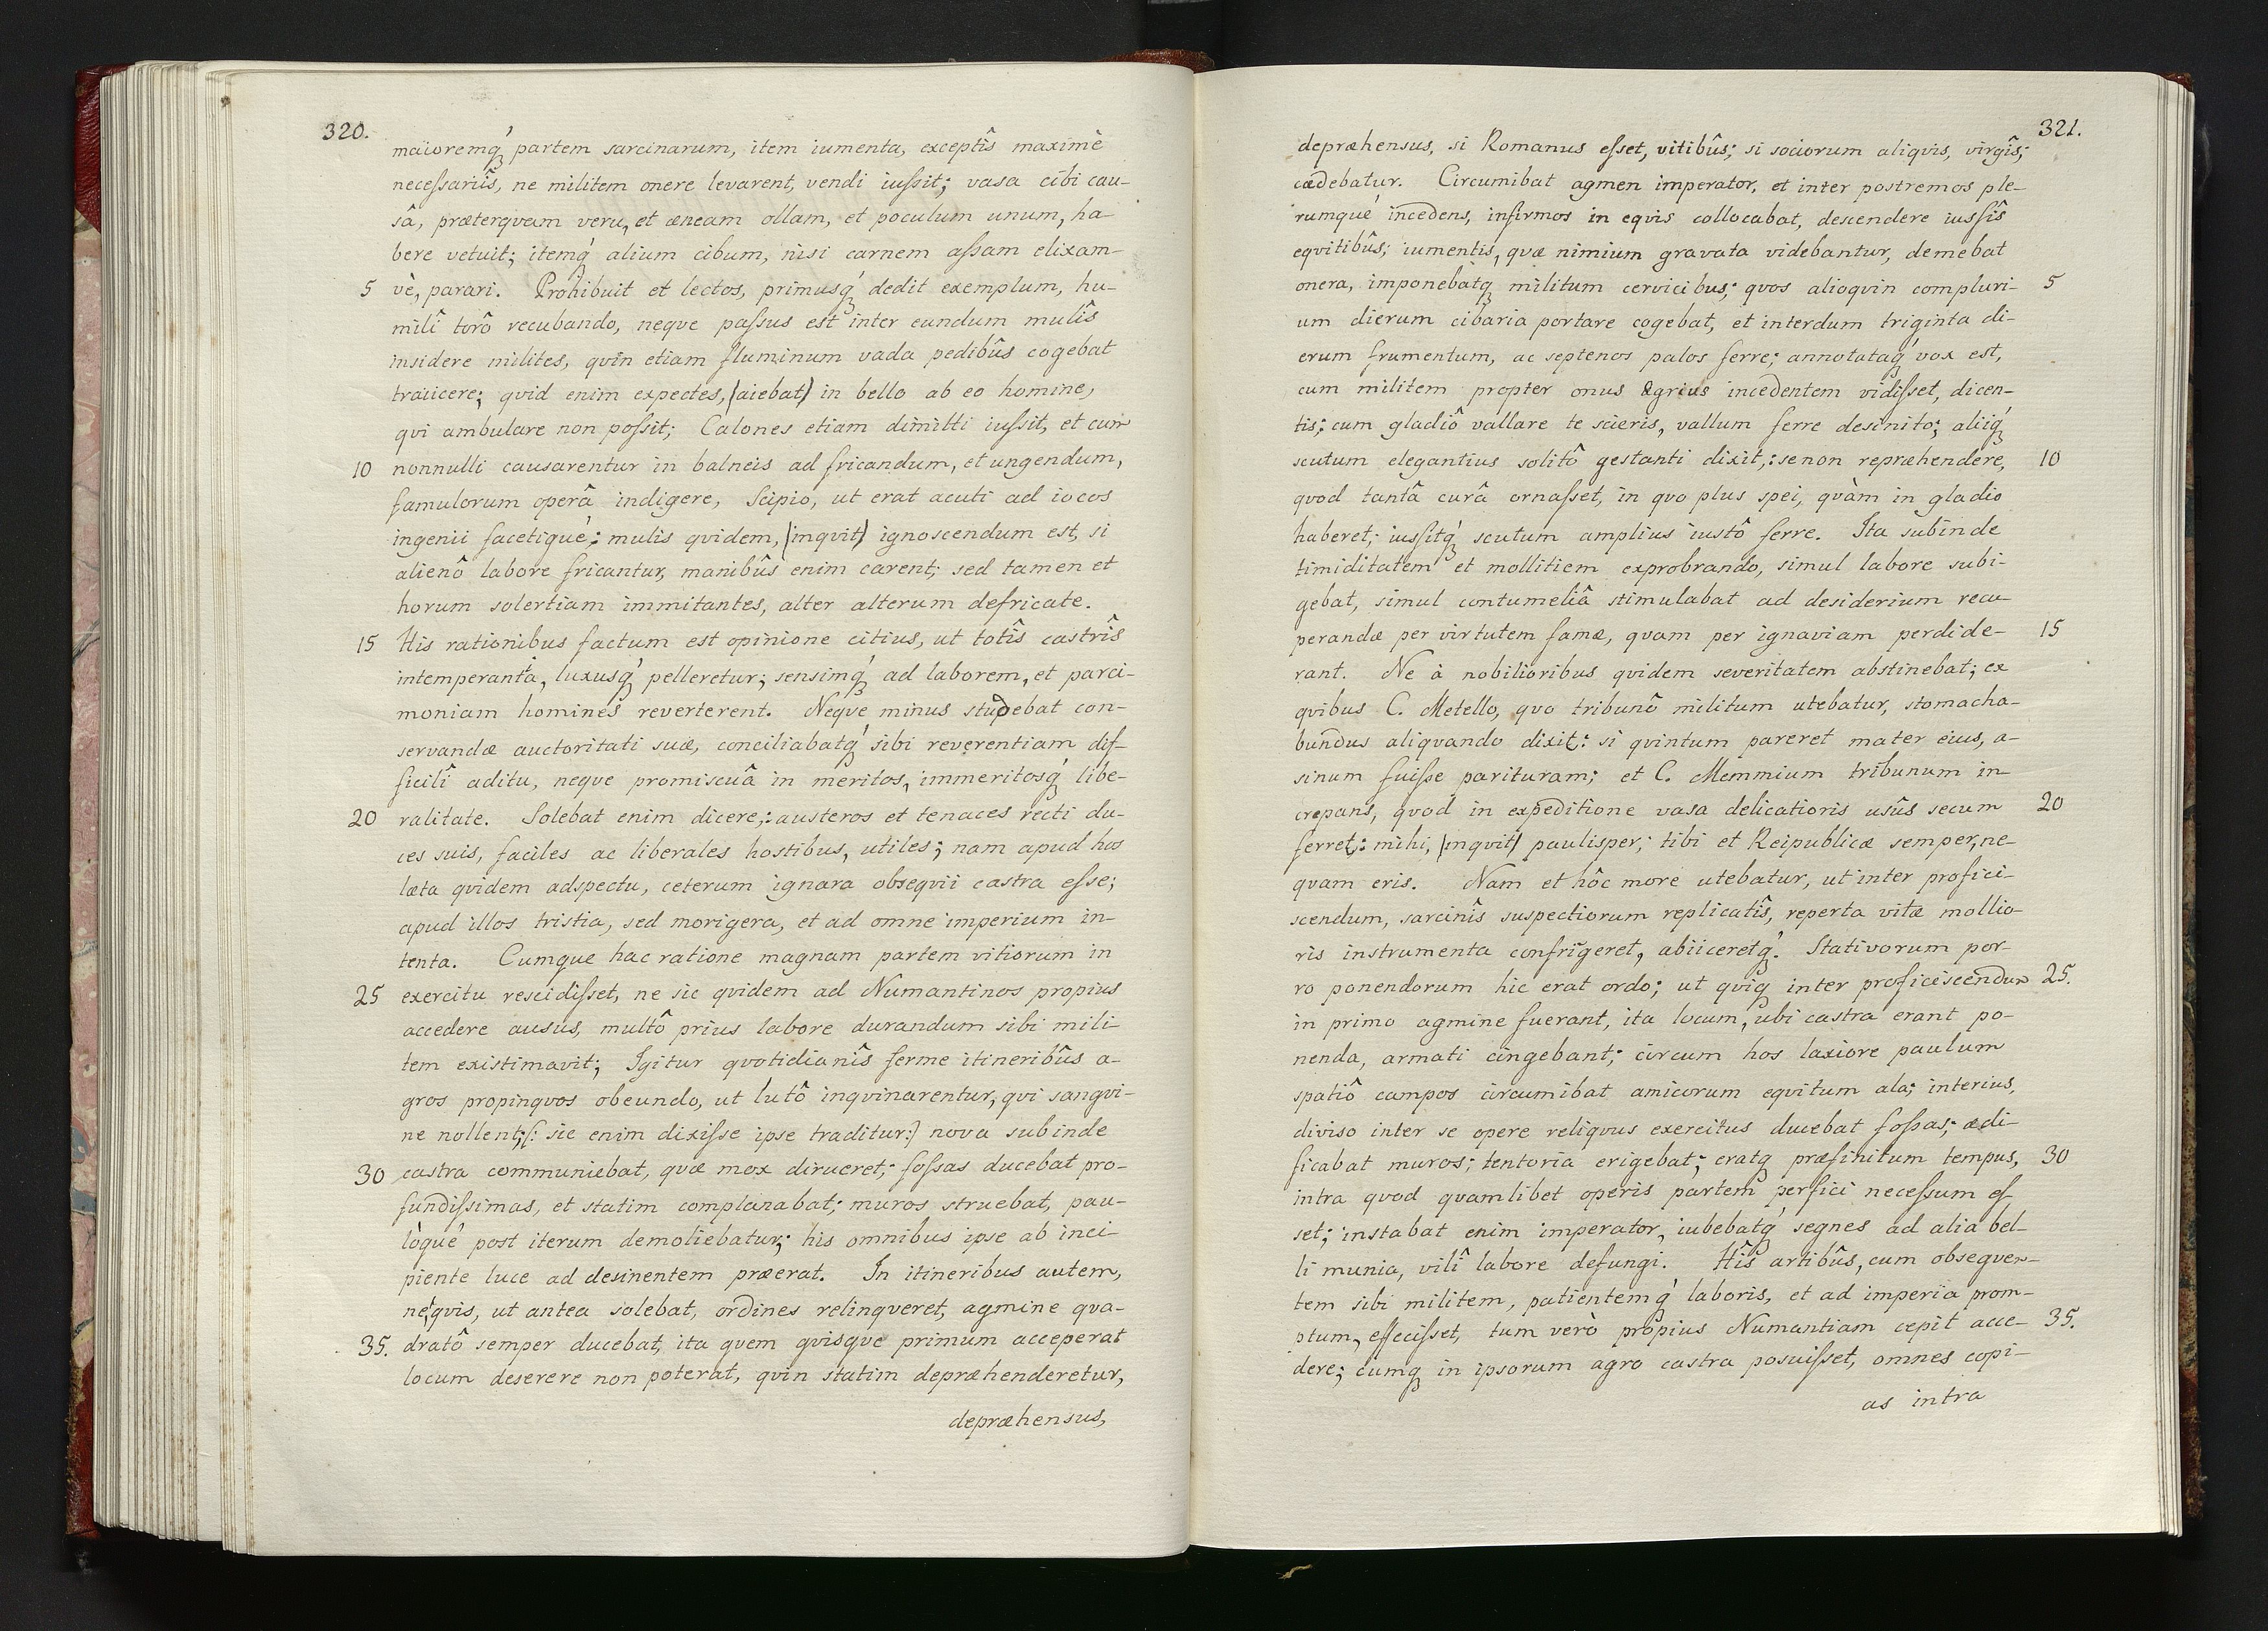 320.
maioremq́ partem sarcinarum, item iumenta, exceptîs maximè
necessariîs, ne militem onere levarent, vendi iussit; vasa cibi cau-
sâ, præterqvam veru, et æneam ollam, et poculum unum, ha-
bere vetuit; itemq́ alium cibum, nisi carnem assam elixam-
5 vè, parari. Prohibuit et lectos, primusq́ dedit exemplum, hu-
milî torô recubando, neqve passus est inter eundum mulîs
insidere milites, qvin etiam fluminum vada pedibûs cogebat
traiicere; qvid enim expectes, (aiebat) in bello ab eo homine,
qvi ambulare non possit; Calones etiam dimitti iussit, et cum
10 nonnulli causarentur in balneis ad fricandum, et ungendum,
famulorum operâ indigere, Scipio, ut erat acuti ad iocos
ingenii facetiqué; mulis qvidem, (inqvit) ignoscendum est, si
alienô labore fricantur, manibûs enim carent; sed tamen et
horum solertiam immitantes, alter alterum defricate.
15 His rationibus factum est opinione citius, ut totîs castrîs
intemperantia, luxusq́ pelleretur; sensimq́ ad laborem, et parci-
moniam homines reverterent. Neqve minus studebat con-
servandæ auctoritati suæ, conciliabatq́ sibi reverentiam dif-
ficilî aditu, neqve promiscuâ in meritos, immeritosq́ libe-
20 ralitate. Solebat enim dicere,: austeros et tenaces recti du-
ces suis, faciles ac liberales hostibus, utiles; nam apud hos
læta qvidem adspectu, ceterum ignara obseqvii castra esse;
apud illos tristia, sed morigera, et ad omne imperium in-
tenta. Cumque hac ratione magnam partem vitiorum in
25 exercitu rescidisset, ne sic qvidem ad Numantinos propius
accedere ausus, multô prius labore durandum sibi mili-
tem existimavit; Igitur qvotidianîs ferme itineribûs a-
gros propinqvos obeundo, ut lutô inqvinarentur, qvi sangvi-
ne nollent;(: sic enim dixisse ipse traditur:) nova subinde
30 castra communiebat, qvæ mox dirueret; fossas ducebat pro-
fundissimas, et statim complanabat; muros struebat, pau-
lòqué post iterum demoliebatur; his omnibus ipse ab inci-
piente luce ad desinentem præerat. In itineribus autem,
ne qvis, ut antea solebat, ordines relinqveret, agmine qva-
35. dratô semper ducebat, ita qvem qvisqve primum acceperat
locum deserere non poterat, qvin statim depræhenderetur,
depræhensus,
321.
depræhensus, si Romanus esset, vitibûs; si sociorum aliqvis, virgîs;
cædebatur. Circumibat agmen imperator, et inter postremos ple-
rumqué incedens, infirmos in eqvis collocabat, descendere iussîs
eqvitibûs; iumentis, qvæ nimium gravata videbantur, demebat
onera, imponebatq́ militum cervicibus; qvos alioqvin compluri- 5
um dierum cibaria portare cogebat, et interdum triginta di-
erum frumentum, ac septenos palos ferre; annotataq́ vox est,
cum militem propter onus ægrius incedentem vidisset, dicen-
tis; cum gladiô vallare te scieris, vallum ferre desinito; aliiq́
scutum elegantius solitô gestanti dixit,: se non repræhendere, 10
qvod tantâ curâ ornasset, in qvo plus spei, qvàm in gladio
haberet; iussitq́ scutum amplius iustô ferre. Ita subinde
timiditatem et mollitiem exprobrando, simul labore subi-
gebat, simul contumeliâ stimulabat ad desiderium recu-
perandæ per virtutem famæ, quam per ignaviam perdide- 15
rant. Ne à nobilioribus qvidem severitatem abstinebat; ex
qvibus C. Metello, qvo tribunô militum utebatur, stomacha-
bundus aliqvando dixit,: si qvintum pareret mater eius, a-
sinum fuisse parituram; et C. Memmium tribunum in-
crepans, qvod in expeditione vasa delicatioris usûs secum 20
ferret,: mihi, (inqvit) paulisper; tibi et Reipublicæ semper, ne-
qvam eris. Nam et hôc more utebatur, ut inter profici-
scendum, sarcinîs suspectiorum replicatîs, reperta vitæ mollio-
ris instrumenta confrigeret, abiiceretq́. Stativorum por-
ro ponendorum hic erat ordo; ut qviq inter proficiscendum 25.
in primo agmine fuerant, ita locum, ubi castra erant po-
nenda, armati cingebant; circum hos laxiore paulum
spatiô campos circumibat amicorum eqvitum ala; interius,
diviso inter se opere reliqvus exercitus ducebat fossas; ædi-
ficabat muros; tentoria erigebat; eratq præfinitum tempus, 30
intra qvod qvamlibet operis partem perfici necessum es-
set; instabat enim imperator, iubebatq́ segnes ad alia bel-
li munia, vilî labore defungi. Hîs artibûs, cum obseqven-
tem sibi militem, patientemq́ laboris, et ad imperia prom-
ptum, effecisset, tum verò propius Numantiam cepit acce- 35.
dere; cumq in ipsorum agro castra posuisset, omnes copi-
as intra